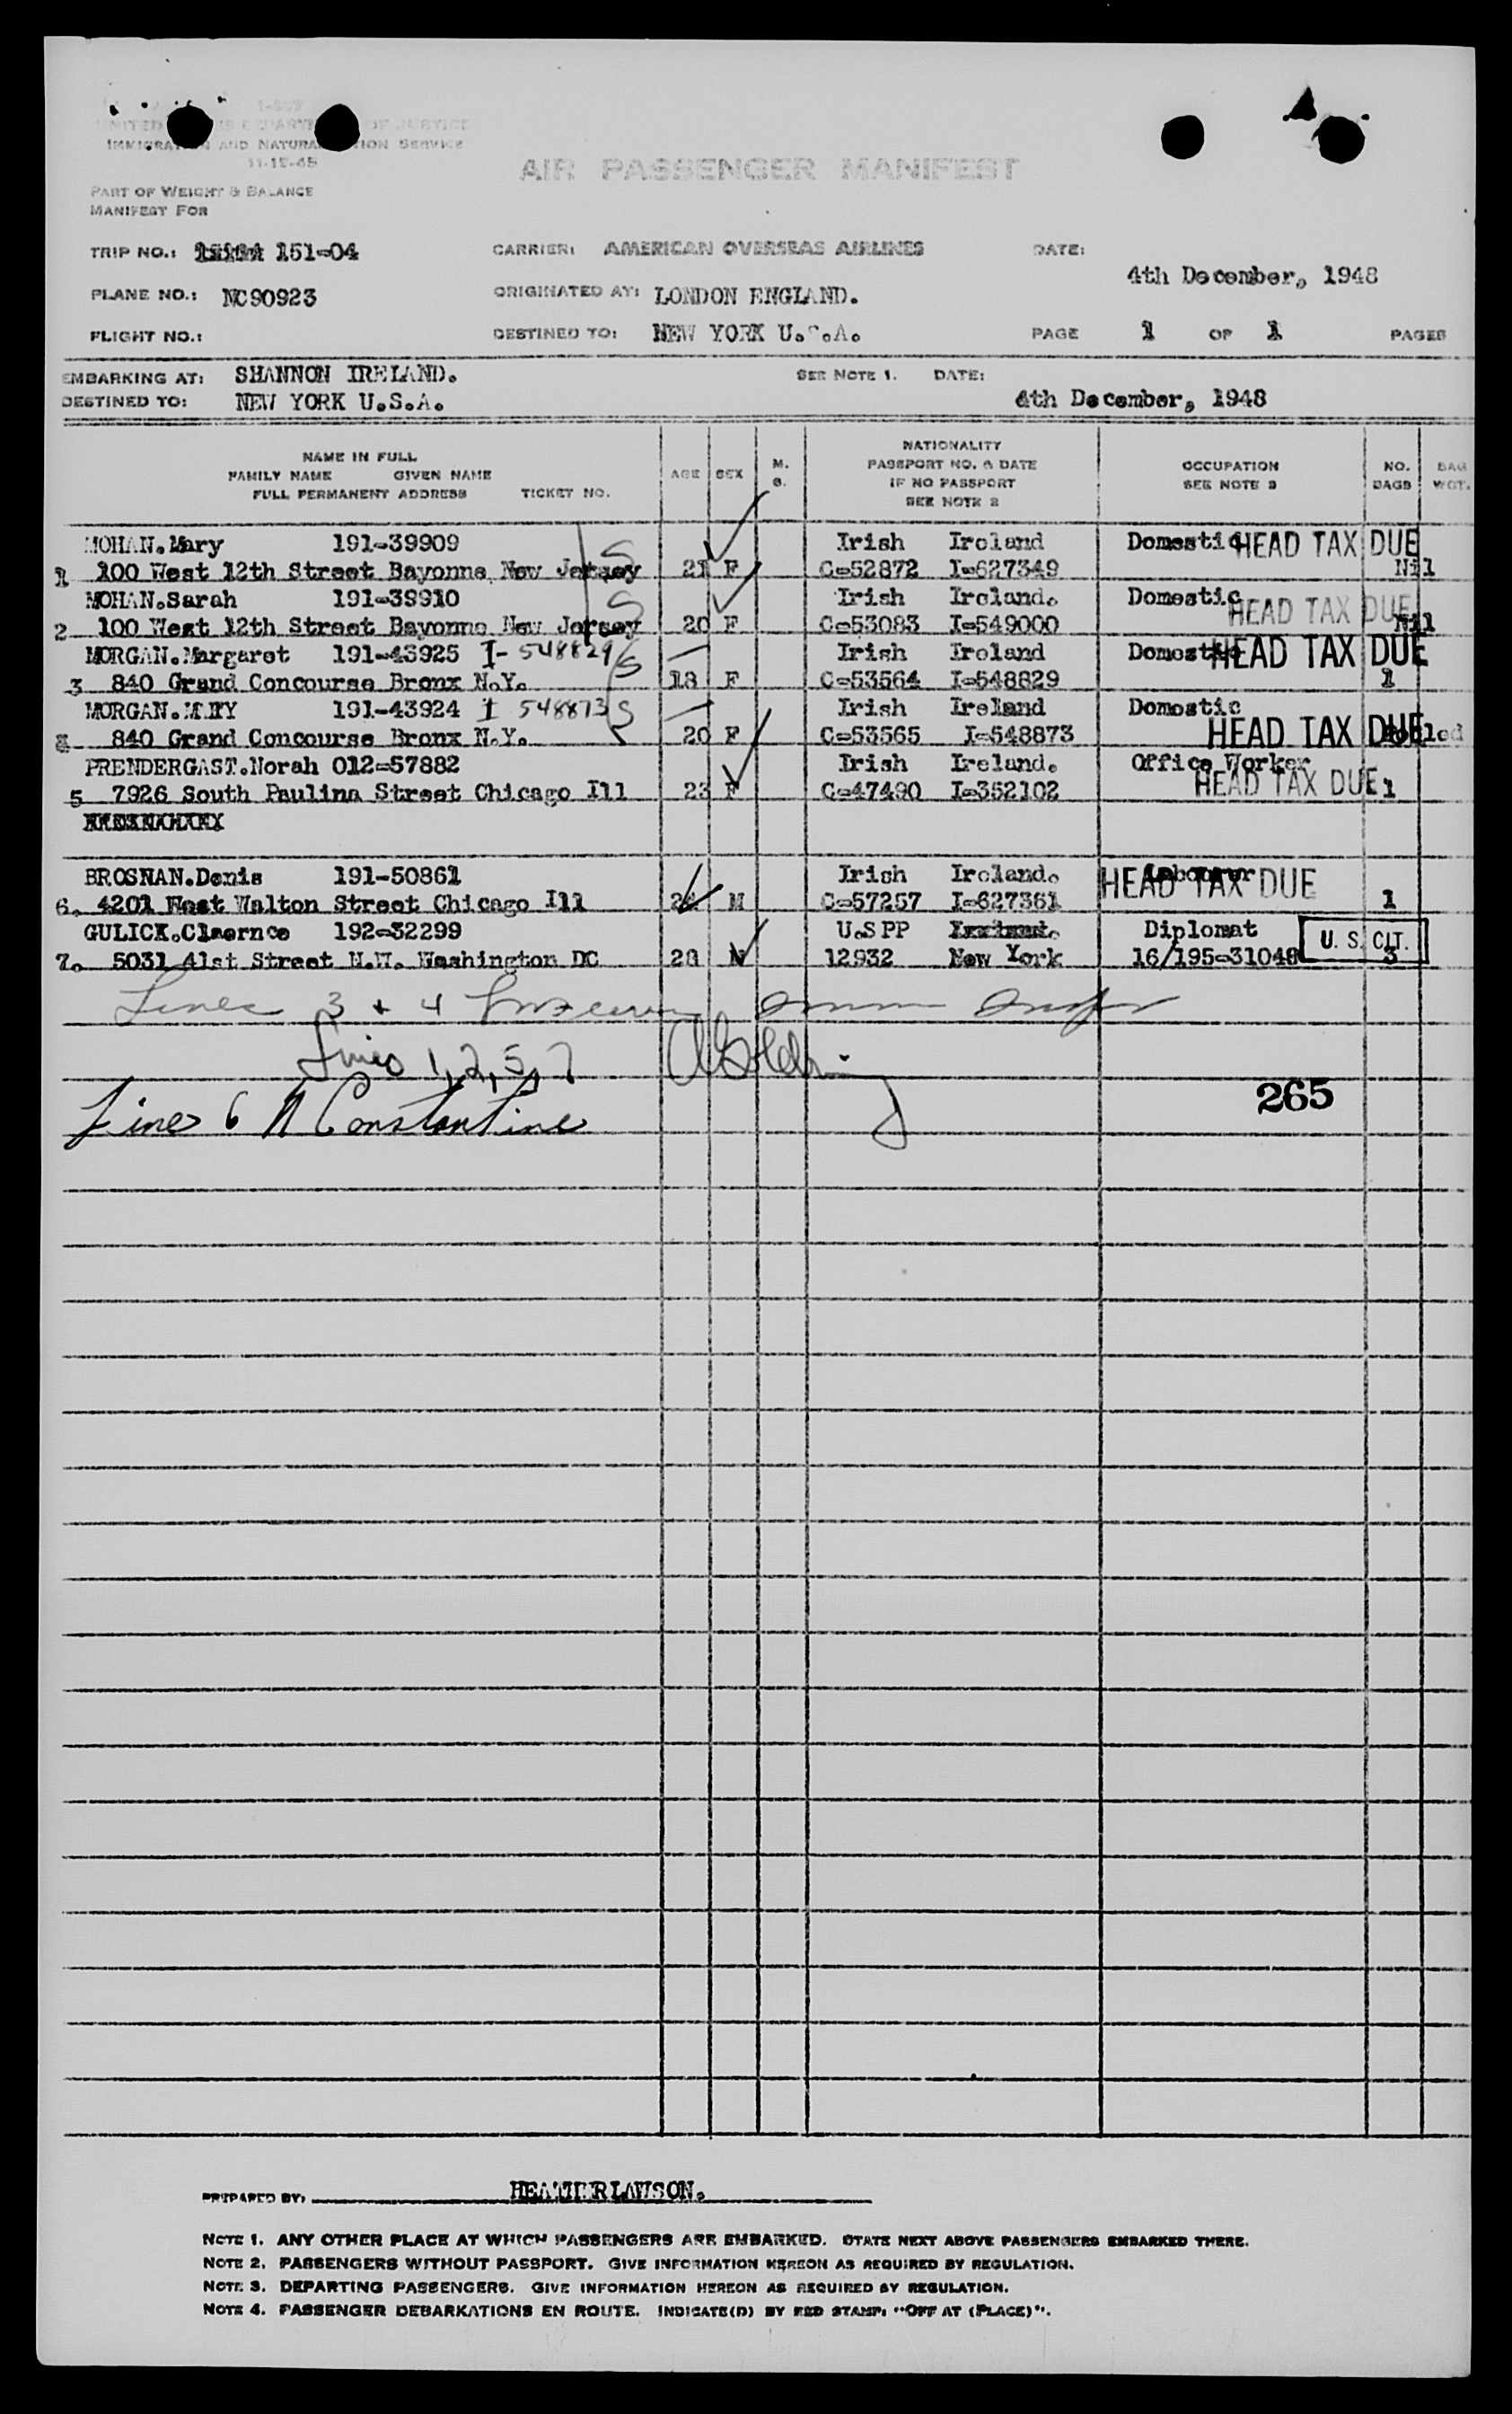 1-507
UNITED STATES DEPARTMENT OF JUSTICE
IMMIGRATION AND NATURALIZATION SERVICE
11-15-45
AIR PASSENGER MANIFEST
PART OF WEIGHT & BALANCE
MANIFEST FOR
TRIP NO.: 151-04 CARRIER: AMERICAN OVERSEAS AIRLINES DATE:
4th December, 1948
PLANE NO.: NC90923 ORIGINATED AT: LONDON ENGLAND.
FLIGHT NO.: DESTINED TO: NEW YORK U.S.A. PAGE 1 OF 1 PAGES
EMBARKING AT: SHANNON IRELAND. SEE NOTE 1. DATE:
DESTINED TO: NEW YORK U.S.A. 4th December, 1948
NAME IN FULL
FAMILY NAME GIVEN NAME
FULL PERMANENT ADDRESS TICKET NO.
AGE SEX M. S.
NATIONALITY
PASSPORT NO. & DATE
IF NO PASSPORT
SEE NOTE 2
OCCUPATION
SEE NOTE 3
NO. BAGS
BAG WGT.
MOHAN.Mary 191-39909 S Irish Ireland Domestic HEAD TAX DUE
1 100 West 12th Street Bayonne New Jersey 21 F C=52872 I=627349 Nil
MOHAN.Sarah 191-39910 S Irish Ireland. Domestic HEAD TAX DUE
2 100 West 12th Street Bayonne New Jersey 20 F C=53083 I=549000 Nil
MORGAN.Margaret 191-43925 I-548829 S Irish Ireland Domestic HEAD TAX DUE
3 840 Grand Concourse Bronx N.Y. 18 F C=53564 I=548829 1
MORGAN.MARY 191-43924 I 548873 S Irish Ireland Domestic
840 Grand Concourse Bronx N.Y. 20 F C=53565 I=548873 HEAD TAX DUE Pooled
PRENDERGAST.Norah 012=57882 Irish Ireland. Office Worker
5 7926 South Paulina Street Chicago Ill 23 F C=47490 I=352102 HEAD TAX DUE 1
BROSNAN.Denis 191-50861 Irish Ireland. Labourer HEAD TAX DUE
6. 4201 West Walton Street Chicago Ill M C=57257 I=627361 1
GULICK.Claernce 192=32299 U.S PP Diplomat U. S. CIT.
7. 5031 41st Street N.W. Washington DC 28 M 12932 New York 16/195=31048 3
Lines 3 + 4
Lines 1, 2, 5, 7
265
Line 6 N Constantine
PREPARED BY: HEATHER LAWSON.
NOTE 1. ANY OTHER PLACE AT WHICH PASSENGERS ARE EMBARKED. STATE NEXT ABOVE PASSENGERS EMBARKED THERE.
NOTE 2. PASSENGERS WITHOUT PASSPORT. GIVE INFORMATION HEREON AS REQUIRED BY REGULATION.
NOTE 3. DEPARTING PASSENGERS. GIVE INFORMATION HEREON AS REQUIRED BY REGULATION.
NOTE 4. PASSENGER DEBARKATIONS EN ROUTE. INDICATE(D) BY RED STAMP: "OFF AT (PLACE)".